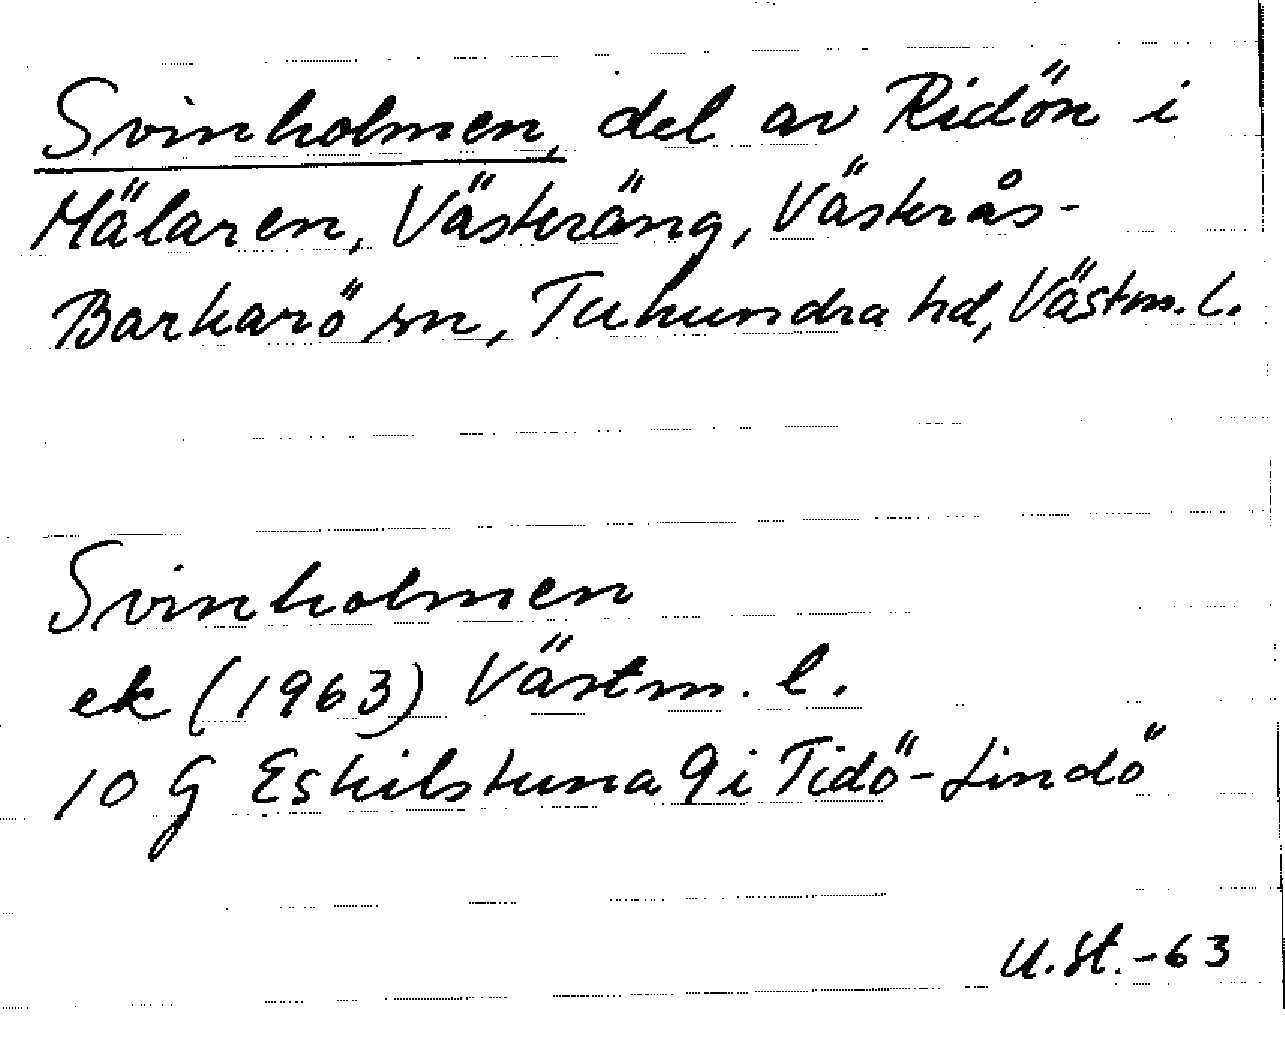 Svinholmen, del av Ridön i
Mälaren, Västeräng, Västerås-
Barkarö sn, Tuhundra hd, Västm. l.
Svinholmen
ek (1963) Västm. l.
10 G Eskilstuna 9 i Tidö-Lindö
U.St.-63